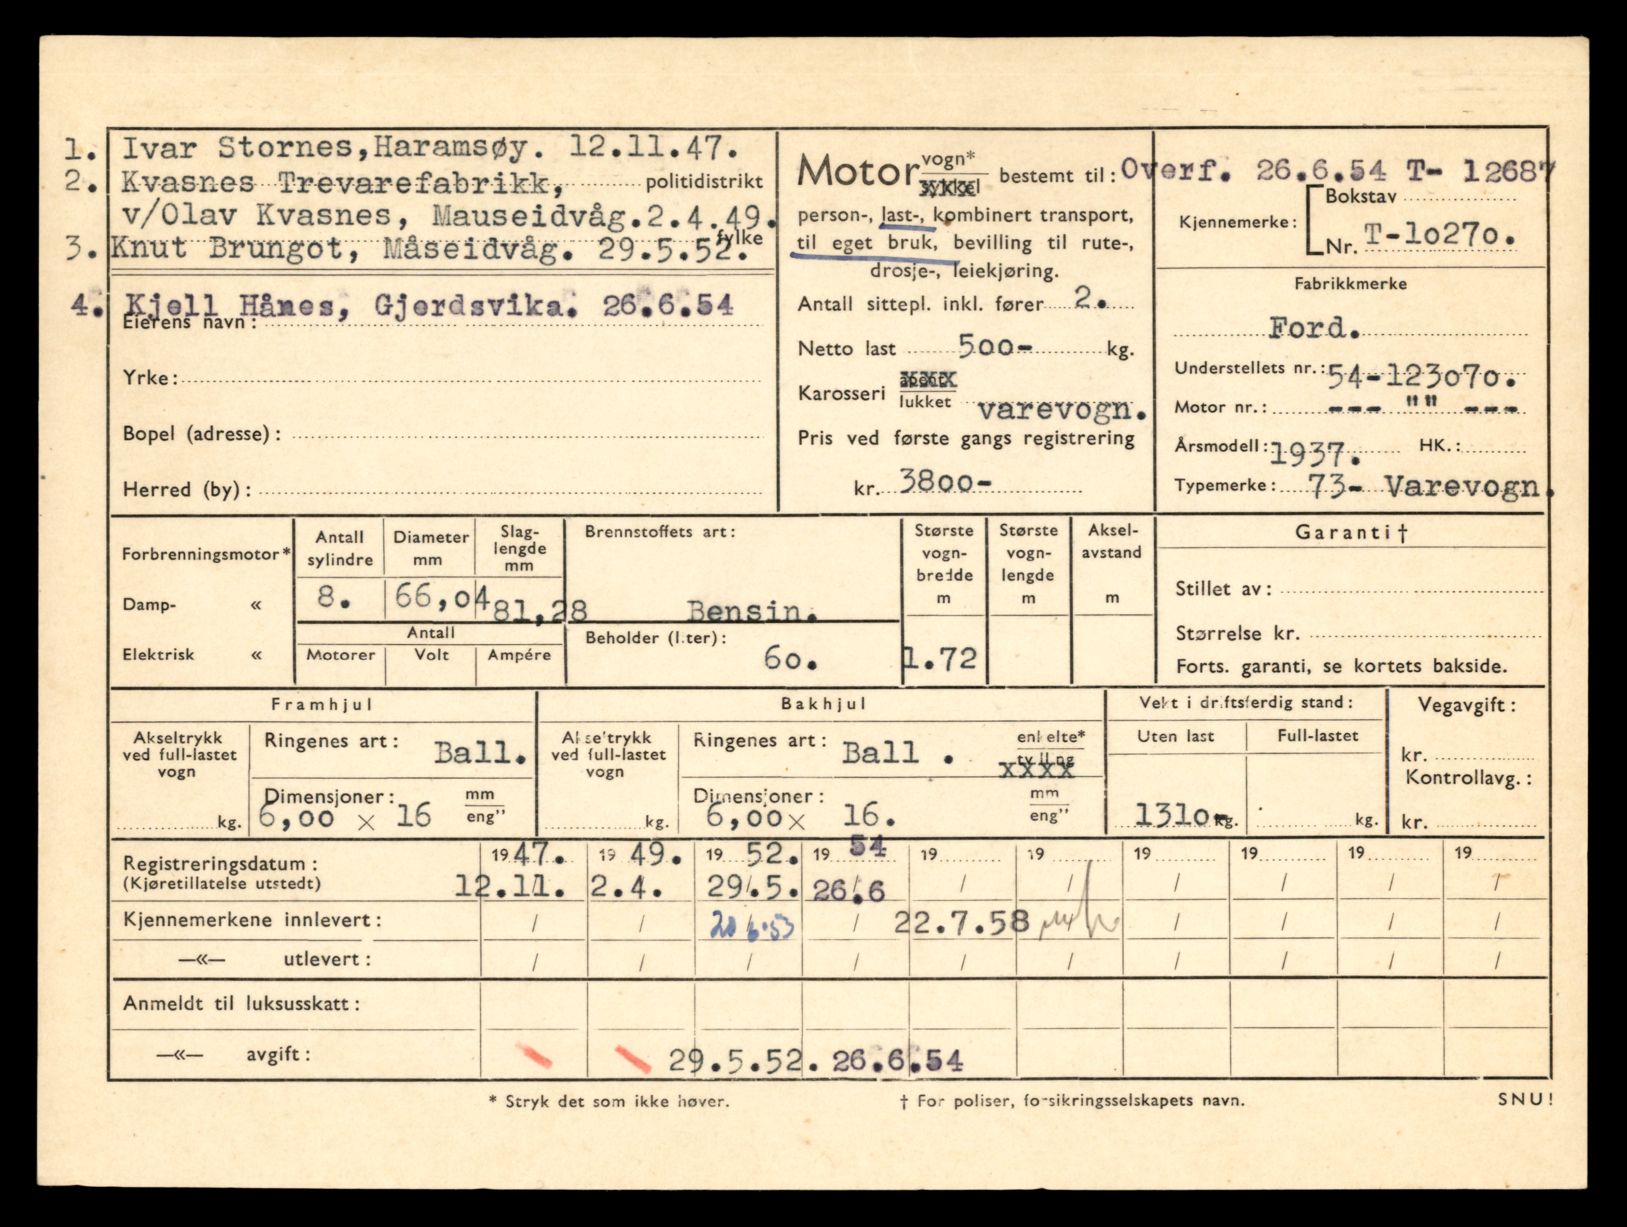 1. Ivar Stornes,Haramsøy. 12.11.47.
2. Kvasnes Trevarefabrikk, politidistrikt
v/Olav Kvasnes, Mauseidvåg.2.4.49.
fylke
3. Knut Brungot, Måseidvåg. 29.5.52.
4. Kjell Hånes, Gjerdsvika. 26.6.54
Eierens navn:
Yrke:
Bopel (adresse):
Herred (by):
Motor vogn* bestemt til:
person-, last-, kombinert transport,
til eget bruk, bevilling til rute-,
drosje-, leiekjøring.
Antall sittepl. inkl. fører 2.
Netto last 500- kg.
Karosseri
lukket varevogn.
Pris ved første gangs registrering
kr. 3800-
Overf. 26.6.54 T- 12687
Bokstav
Kjennemerke:
Nr. T-10270.
Fabrikkmerke
Ford.
Understellets nr.: 54-123070.
Motor nr.: --- "" ---
Årsmodell: 1937. HK.:
Typemerke: 73- Varevogn.
Forbrenningsmotor*
Damp- «
Elektrisk «
Antall sylindre
8.
Diameter mm
66,04
Slag-
lengde
mm
81,28
Antall
Motorer Volt Ampére
Brennstoffets art:
Bensin.
Beholder (liter):
60.
Største
vogn-
bredde
m
1.72
Største
vogn-
lengde
m
Aksel-
avstand
m
Garanti†
Stillet av:
Størrelse kr.
Forts. garanti, se kortets bakside.
Framhjul
Akseltrykk
ved full-lastet
vogn
kg.
Ringenes art: Ball.
Dimensjoner: mm
6,00 x 16 eng"
Bakhjul
Akseltrykk
ved full-lastet
vogn
kg.
Ringenes art: Ball . enkelte*
xxxx
Dimensjoner: mm
6,00x 16. eng"
Vekt i driftsferdig stand:
Uten last Full-lastet
1310- kg. kg.
Vegavgift:
kr.
Kontrollavg.:
kr.
Registreringsdatum: 1947. 1949. 1952. 1954 19 19 19 19 19 19
(Kjøretillatelse utstedt) 12.11. 2.4. 29.5. 26.6 / / / / / /
Kjennemerkene innlevert: / / 20/6.53 / 22.7.58 / / / /
—«— utlevert: / / / / / / / / / /
Anmeldt til luksusskatt:
—«— avgift: 29.5.52. 26.6.54
* Stryk det som ikke høver.
† For poliser, forsikringsselskapets navn.
SNU!